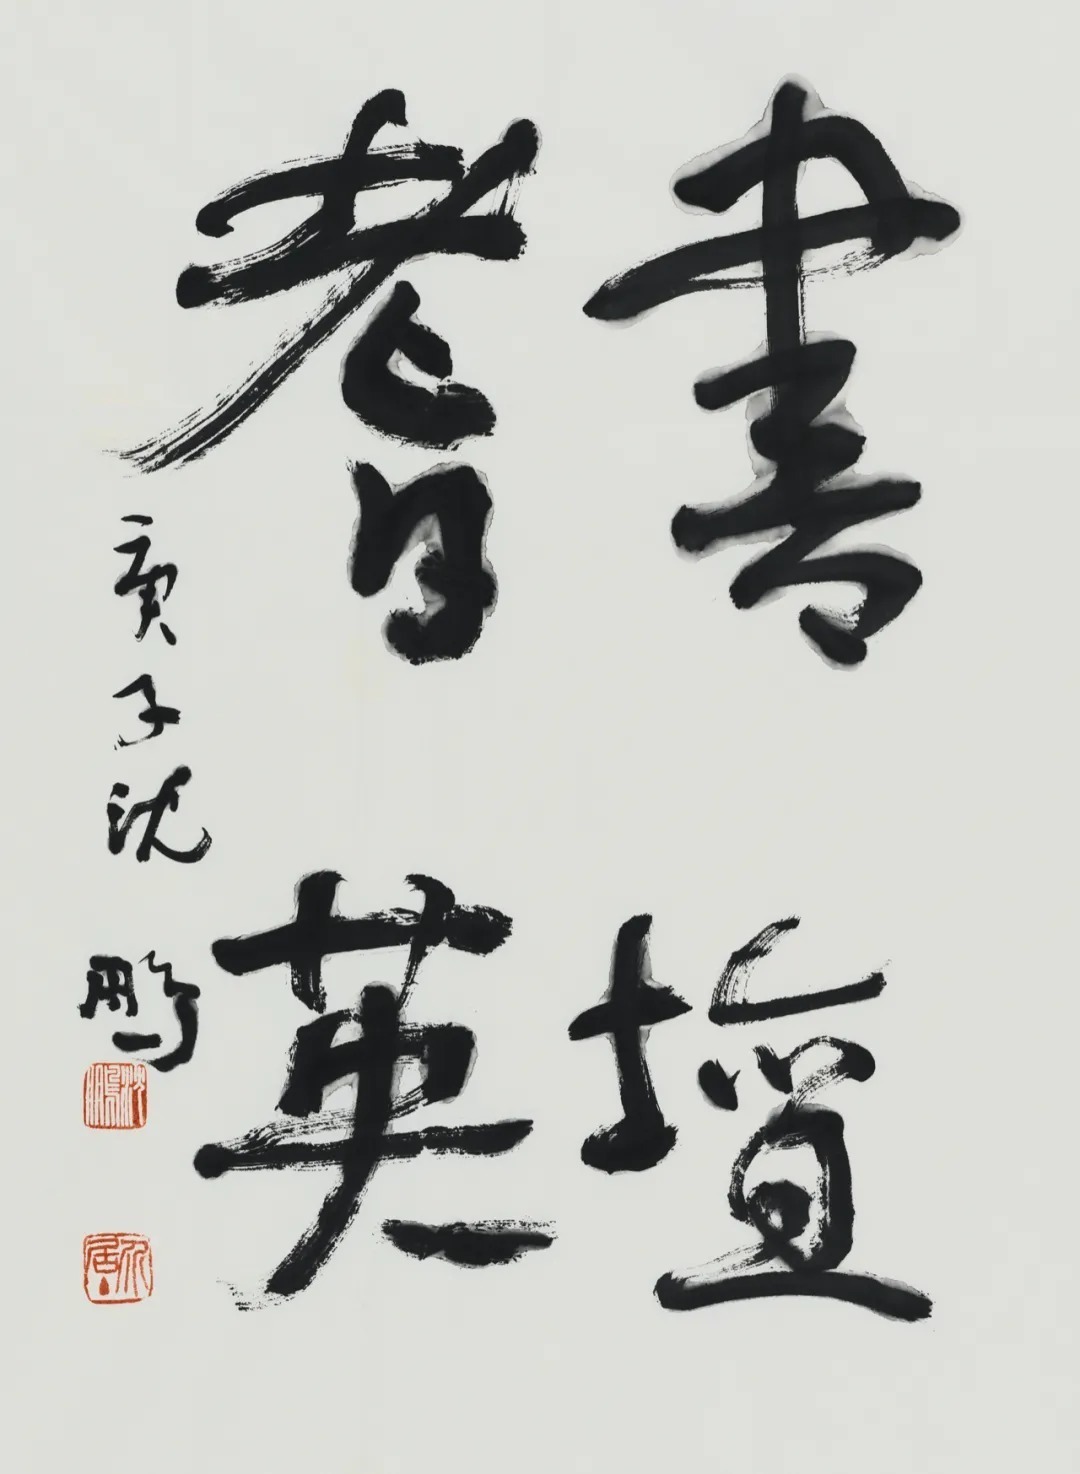 書壇
耆英
庚子沈鵬
沈鵬
介居